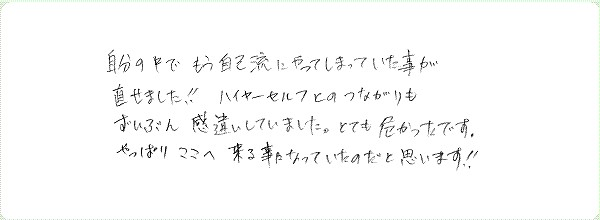 自分の中で もう自己流にやってしまっていた事が
直せました!! ハイヤーセルフとのつながりも
ずいぶん 感違いしていました。とても 危かったです。
やっぱり ここへ 来る事になっていたのだと思います!!